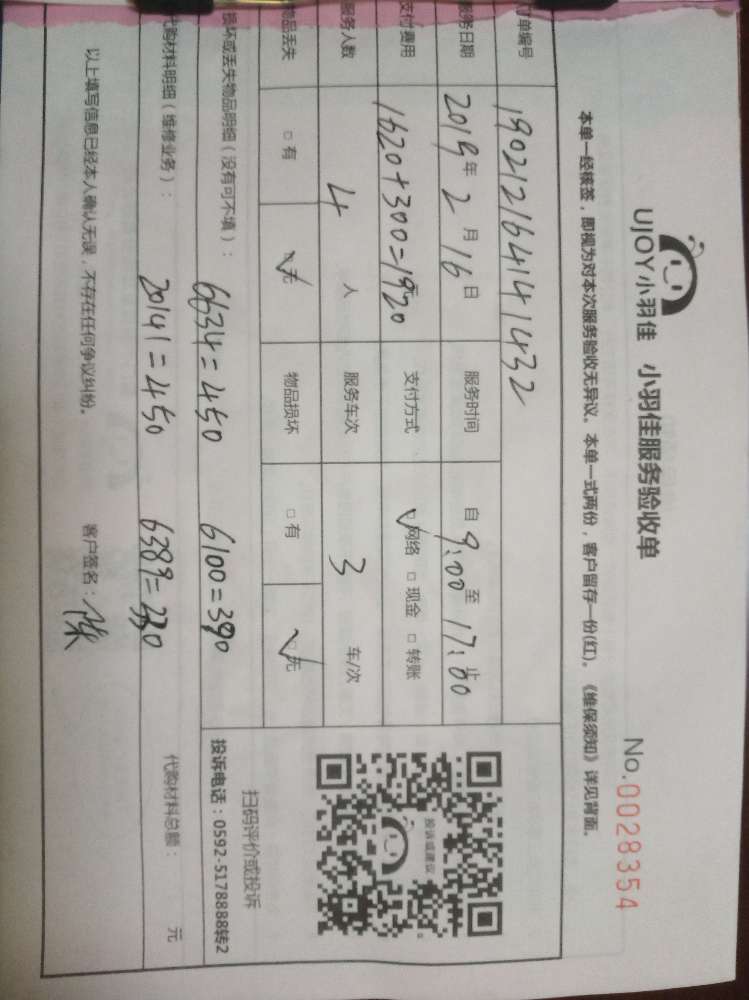 UJOY小羽佳 小羽佳服务验收单
No.0028354
本单一经核签，即视为对本次服务验收无异议。本单一式两份，客户留存一份(红)。《维保须知》详见背面。
单编号 190212164141432
服务日期 2019年2月16日 服务时间 自9:00至17:00止
支付费用 1620+300=1920元 支付方式 ☑网络 □现金 □转账
服务人数 4人 服务车次 3车/次
物品丢失 □有 ☑无 物品损坏 □有 ☑无
损坏或丢失物品明细（没有可不填）： 6634=450 6100=390
代购材料明细（维修业务）： 20141=450 6389=330 代购材料总额： 元
投诉或建议
扫码评价或投诉
投诉电话：0592-5178888转2
以上填写信息已经本人确认无误，不存在任何争议纠纷。 客户签名：